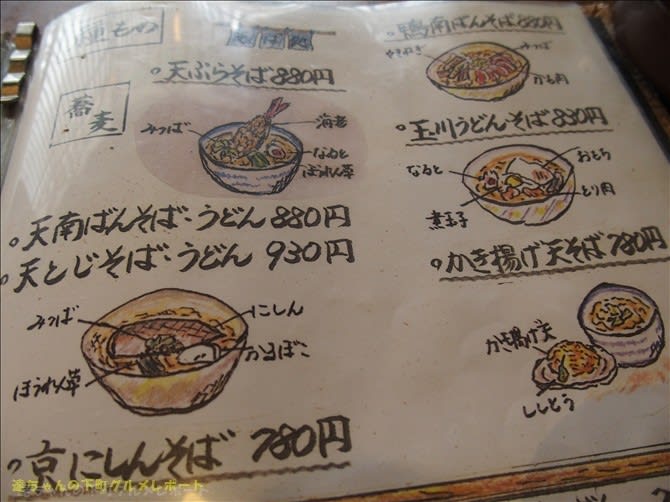 種もの
蕎麦
天ぷらそば 880円
みつば
海老
なると
ほうれん草
天南ばんそば・うどん 880円
天とじそば・うどん 930円
みつば
にしん
ほうれん草
かまぼこ
京にしんそば 780円
鴨南ばんそば 880円
やきねぎ
みつば
かも肉
玉川うどんそば 830円
なると
おとう
とり肉
煮玉子
かき揚げ天そば 780円
かき揚げ天
ししとう
達ちゃんの下町グルメレポート